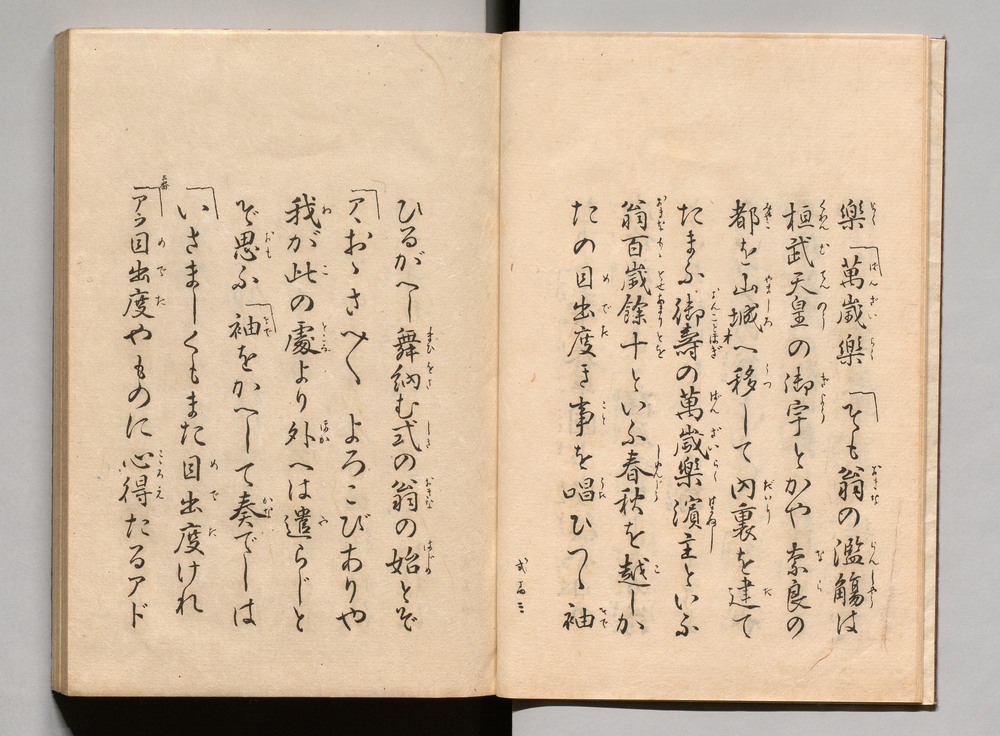 樂「萬歳樂「そも翁の濫觴は
桓武天皇の御宇とかや 奈良の
都を山城へ移して内裏を建て
たまふ御壽の萬歳樂濱主といふ
翁百歳餘十といふ春秋を越しか
たの目出度き事を唱ひつゝ袖
弐 三
ひるがへし舞納む式の翁の始とぞ
「アヽおゝさへ〳〵 よろこびありや
我が此の處より外へは遣らじと
ぞ思ふ「袖をかへして奏でしは
「いさましくもまた目出度けれ
「アラ目出度やものに心得たるアド